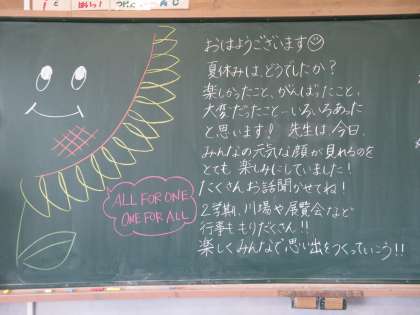 おはようございます
夏休みは、どうでしたか?
楽しかったこと、がんばったこと、
大変だったこと…いろいろあった
と思います! 先生は、今日、
みんなの元気な顔が見れるのを
とても楽しみにしていました!
たくさんお話聞かせてね!
2学期、川場や展覧会など
行事ももりだくさん!!
楽しくみんなで思い出をつくっていこう!!
ALL FOR ONE
ONE FOR ALL